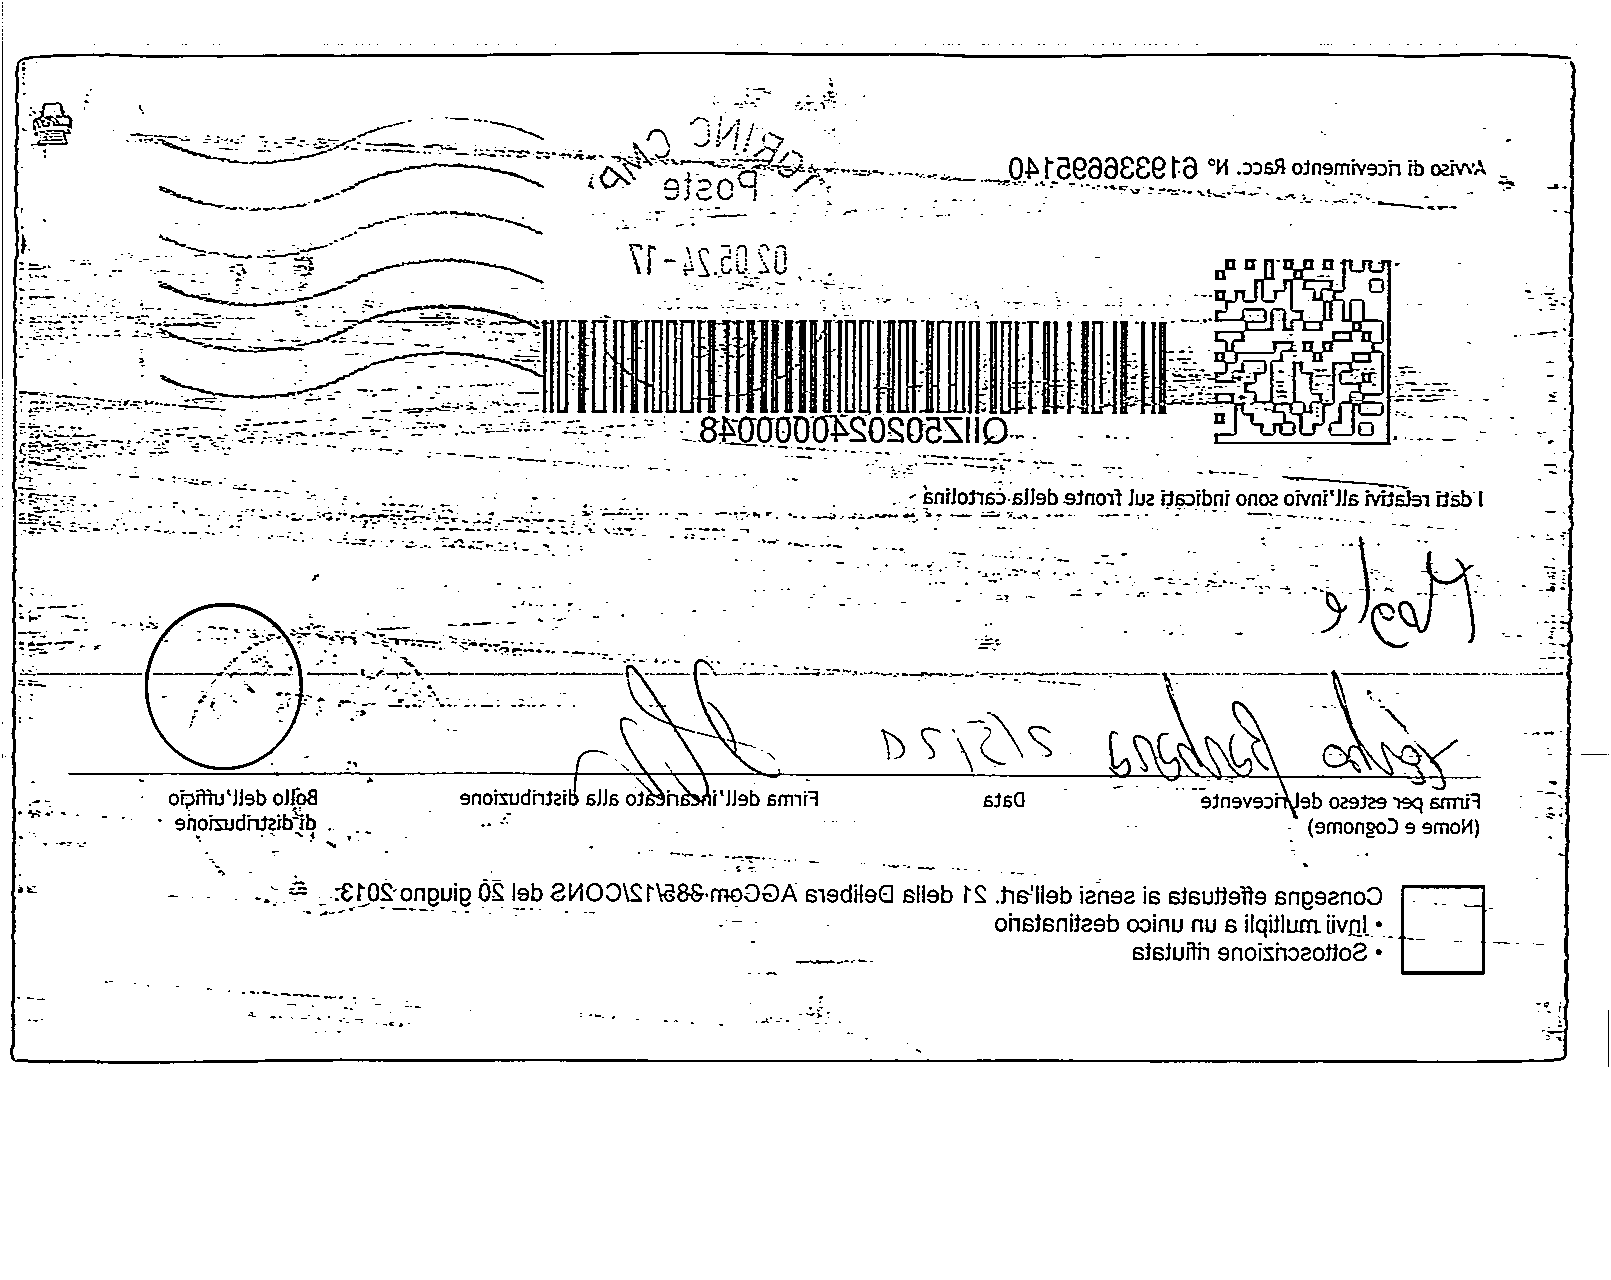 Avviso di ricevimento Racc. N° 619336695140
TORINO CMP
Poste
02.05.24-17
QIIZ5020240000048
I dati relativi all'invio sono indicati sul fronte della cartolina
Barbara 2/5/24
Firma per esteso del ricevente
(Nome e Cognome)
Data
Firma dell'incaricato alla distribuzione
Bollo dell'ufficio
di distribuzione
Consegna effettuata ai sensi dell'art. 21 della Delibera AGCom 385/12/CONS del 20 giugno 2013:
• Invii multipli a un unico destinatario
• Sottoscrizione rifiutata